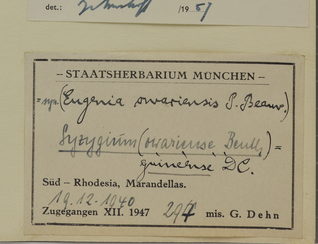 det.: /19 57
– STAATSHERBARIUM MÜNCHEN –
= syn. (Eugenia owariensis P. Beauv.)
Syzygium (owariense Benth.) =
guineense DC.
Süd – Rhodesia, Marandellas.
19.12.1940
Zugegangen XII. 1947 294 mis. G. Dehn